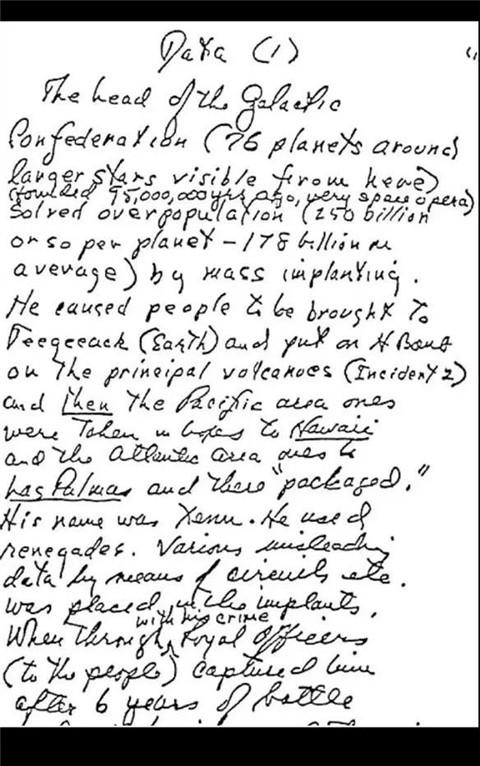 Data (1)
The head of the Galactic
Confederation (76 planets around
larger stars visible from here)
(founded 95,000,000 yrs ago, very space opera)
solved overpopulation (250 billion
or so per planet - 178 billion on
average) by mass implanting.
He caused people to be brought to
Teegeeack (Earth) and put an H Bomb
on the principal volcanoes (Incident 2)
and then the Pacific area ones
were taken in boxes to Hawaii
and the Atlantic area ones to
Las Palmas and there "packaged."
His name was Xenu. He used
renegades. Various misleading
data by means of circuits etc.
was placed in the implants.
with his crime
When through Loyal Officers
(to the people) captured him
after 6 years of battle